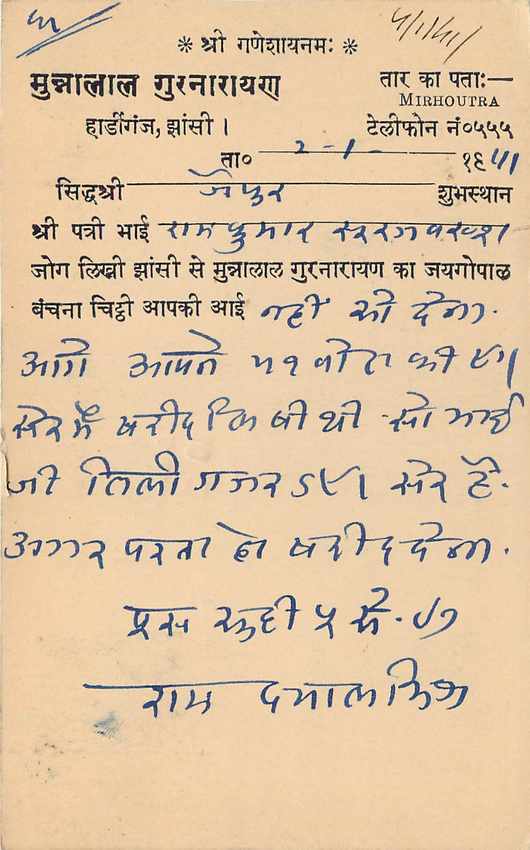 ५१ ५/१/५१
* श्री गणेशायनमः *
मुन्नालाल गुरनारायण तार का पताः—
MIRHOUTRA
हार्डीगंज, झांसी । टेलीफोन नं०५५५
ता० २-१- १९५१
सिद्धश्री जेपुर शुभस्थान
श्री पत्री भाई रामकुमार सूरजबख्श
जोग लिखी झांसी से मुन्नालाल गुरनारायण का जयगोपाल
बंचना चिट्ठी आपकी आई नही सो देना.
आगे आपने ५१ बोरा की
सेर में खरीद लिखी थी सो भाई
जी तिली गजर सेर है.
अगर परता हो खरीद देना.
सुदी ५ सं.
राम दयाल